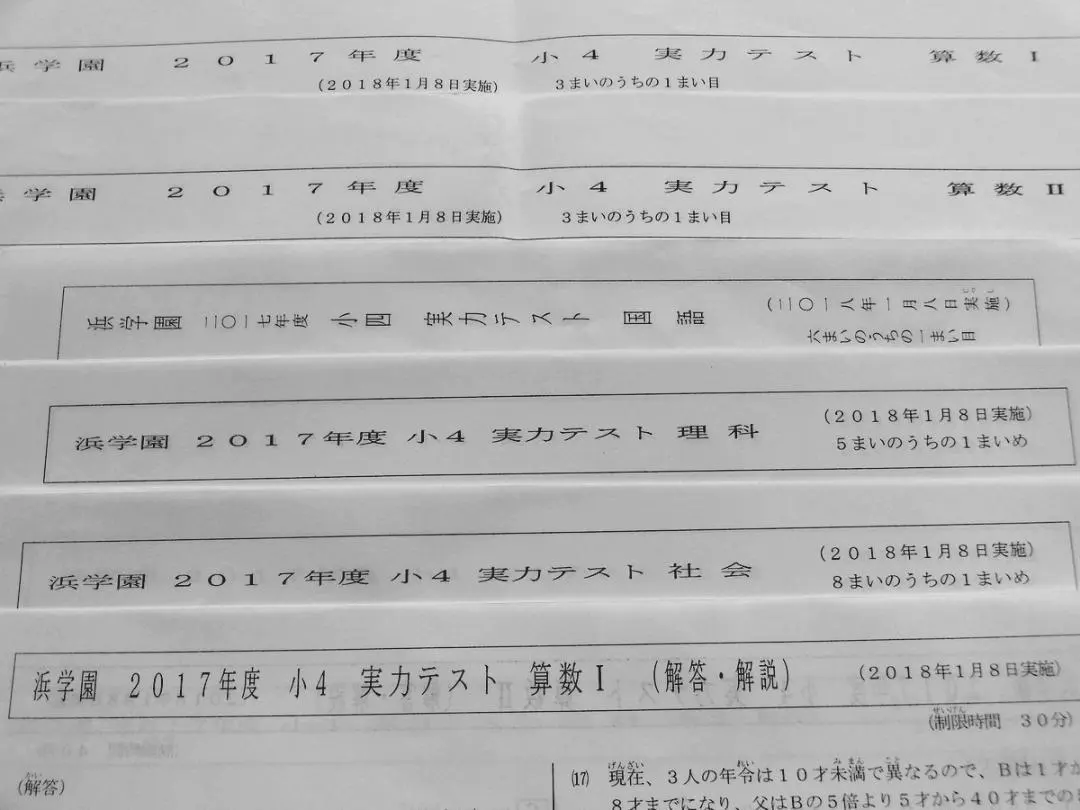 浜学園 2017年度 小4 実力テスト 算数Ⅰ
(2018年1月8日実施) 3まいのうちの1まい目
浜学園 2017年度 小4 実力テスト 算数Ⅱ
(2018年1月8日実施) 3まいのうちの1まい目
浜学園 二〇一七年度 小四 実力テスト 国語 (二〇一八年一月八日実施)
六まいのうちの一まい目
浜学園 2017年度 小4 実力テスト 理科 (2018年1月8日実施)
5まいのうちの1まいめ
浜学園 2017年度 小4 実力テスト 社会 (2018年1月8日実施)
8まいのうちの1まいめ
浜学園 2017年度 小4 実力テスト 算数Ⅰ (解答・解説) (2018年1月8日実施)
(制限時間 30分)
(解答)
(17) 現在、3人の年令は10才未満で異なるので、Bは1才か
8才までになり、父はBの5倍より5才から40才までの